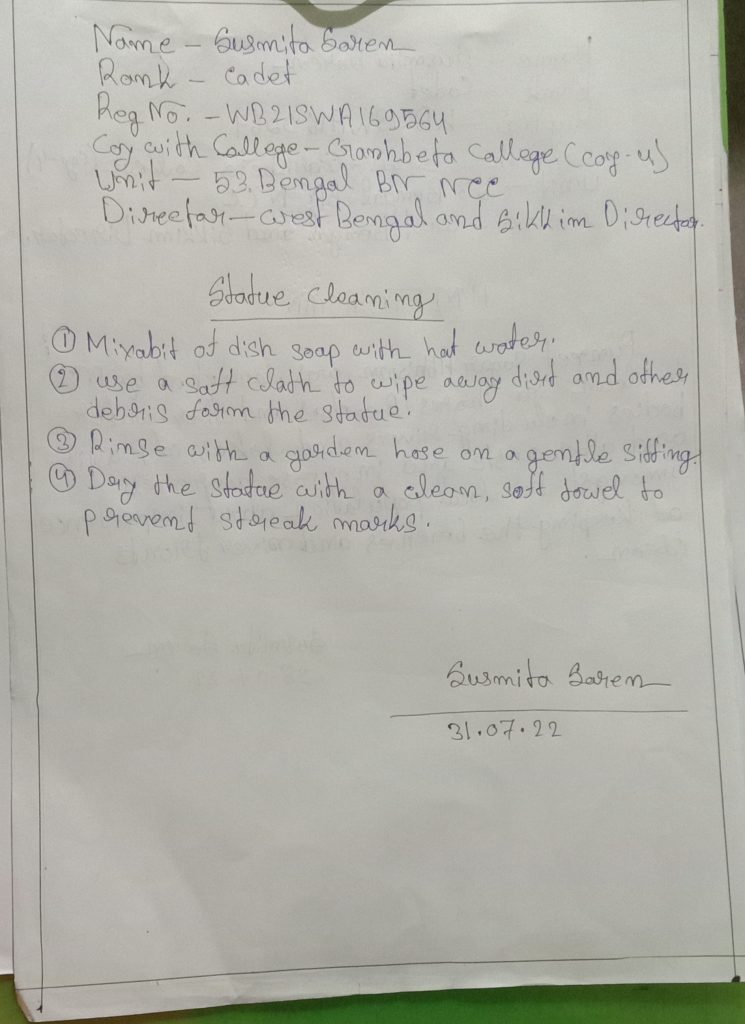 Name - Susmita Saren
Rank - Cadet
Reg No. - WB21SWA169564
Coy with College - Garhbeta College (coy-4)
Unit - 53 Bengal BN NCC
Director - West Bengal and Sikkim Director.
Statue Cleaning
① Mixabit of dish soap with hot water.
② use a soft cloth to wipe away dirt and other
debris form the statue.
③ Rinse with a garden hose on a gentle sitting.
④ Dry the statue with a clean, soft towel to
prevent streak marks.
Susmita Saren
31.07.22